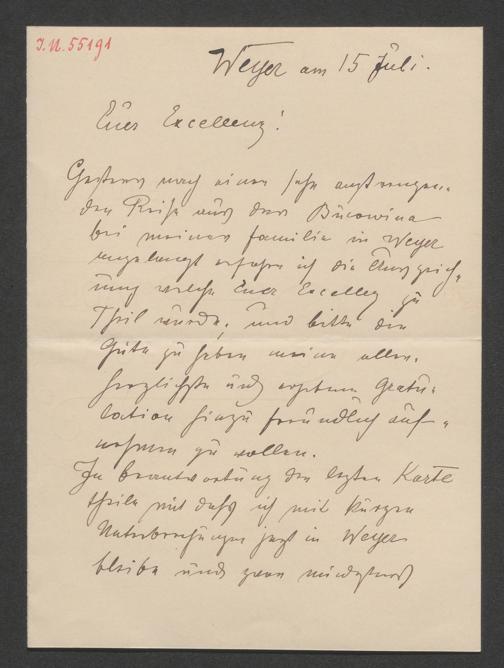 I.N. 55191
Weyer am 15 Juli.
Euer Excellenz!
Gestern nach einer sehr anstrengen-
den Reise aus der Bucowina
bei meiner Familie in Weyer
angelangt erfahre ich die Auszeich-
nung welche Euer Excellenz zu
Theil wurde, und bitte die
Güte zu haben meine aller-
herzlichste und ergebene Gratu-
lation hiezu freundlich auf-
nehmen zu wollen.
In Beantwortung der letzten Karte
theile mit dass ich mit kurzen
Unterbrechungen jetzt in Weyer
bleibe und zwar mindestens